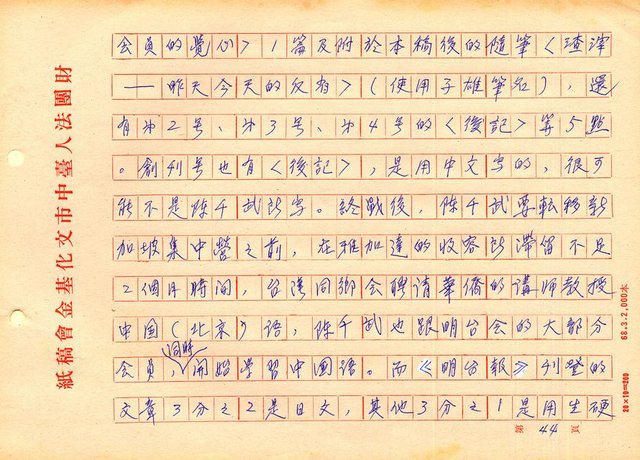 会員的覺心>1篇及附於本稿後的隨筆<渣滓
——昨天今天的反省>(使用子雄筆名),還
有第2号、第3号、第4号的<後記>等5點
。創刊号也有<後記>,是用中文写的,很可
能不是陈千武所写。終戰後,陈千武要転移新
加坡集中營之前,在雅加達的收容所滞留不足
2個月時间,台湾同鄉会聘请華僑的講师教授
中国(北京)语,陈千武也跟明台会的大部分
会員、同時開始学習中国语。而《明台報》刊登的
文章3分之2是日文,其他3分之1是用生硬
第44頁
財團法人臺中市文化基金會稿紙
68.3.2,000本
20×10=200